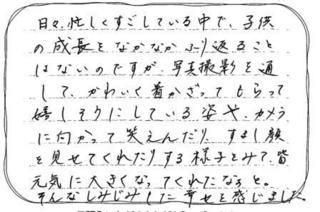 日々、忙しくすごしている中で、子供
の成長をなかなかふり返ること
はないのですが、写真撮影を通
して、かわいく着かざってもらって
嬉しそうにしている姿や、カメラ
に向かって笑えんだり、すまし顔
を見せてくれたりする様子をみて、皆
元気に大きくなってくれたなあと。
そんなしみじみした幸せを感じました